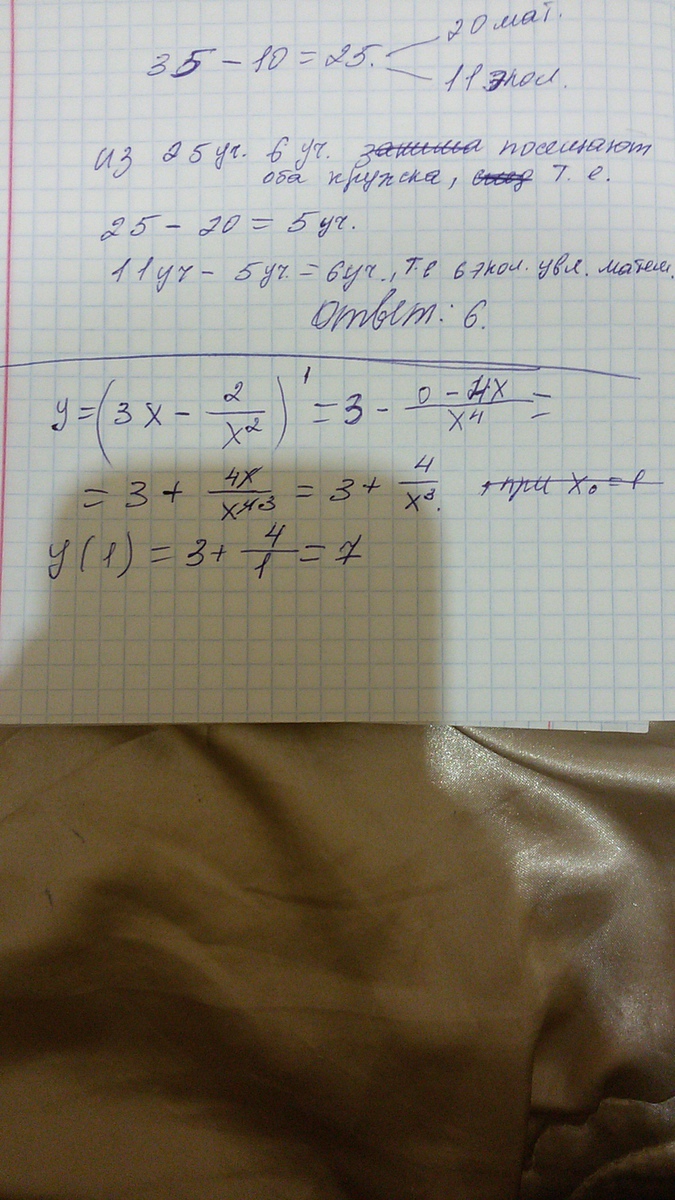 35 - 10 = 25. 20 мат.
11 экол.
из 25 уч. 6 уч. посещают
оба кружка, т. е.
25 - 20 = 5 уч.
11 уч - 5 уч. = 6 уч., т.е 6 экол. увл. матем.
Ответ: 6.
y = (3x - 2/x²)' = 3 - (0 - 4x)/x⁴ =
= 3 + 4x/x⁴ ³ = 3 + 4/x³. при x₀ = 1
y(1) = 3 + 4/1 = 7